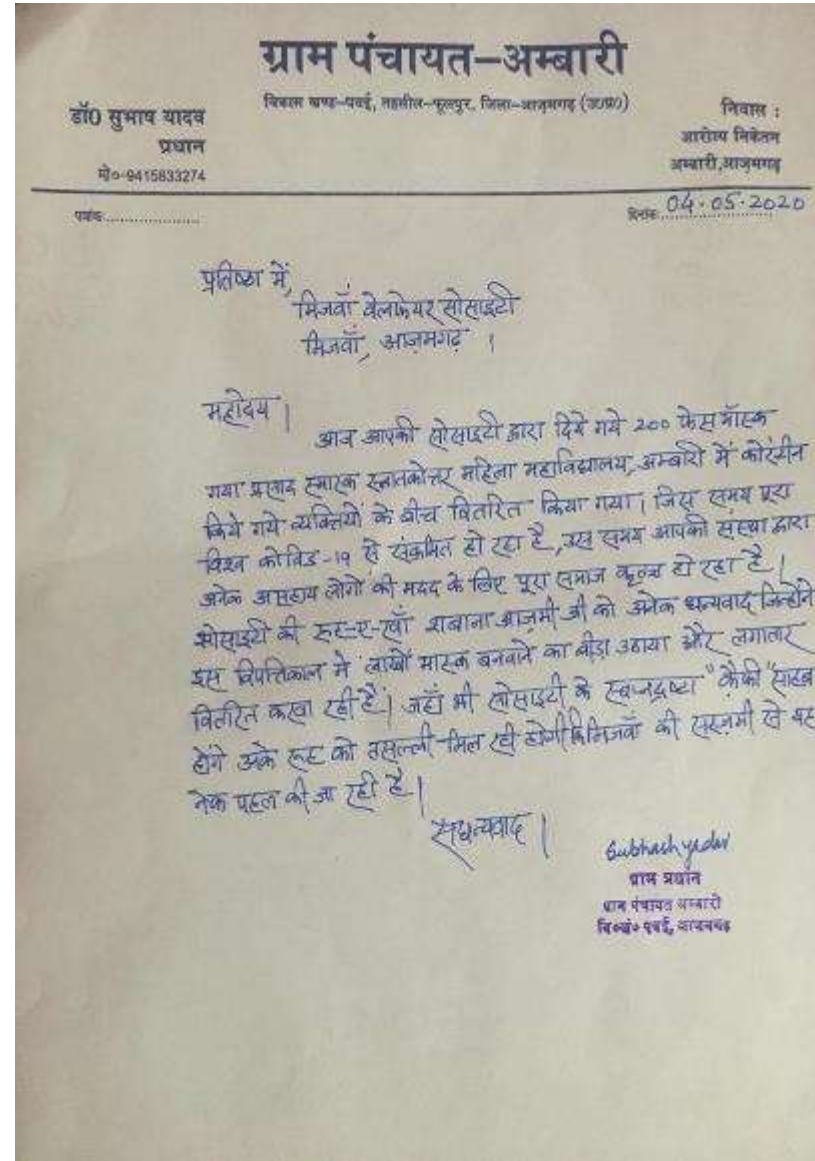 ग्राम पंचायत–अम्बारी
विकास खण्ड-पवई, तहसील-फूलपुर, जिला-आज़मगढ़ (उ०प्र०)
डॉ0 सुभाष यादव
प्रधान
मो०-9415833274
निवास :
आरोग्य निकेतन
अम्बारी,आज़मगढ़
पत्रांक....................
दिनांक 04.05.2020
प्रतिष्ठा में,
मिजवाँ वेलफेयर सोसाइटी
मिजवाँ, आज़मगढ़ ।
महोदय ।
आज आपकी सोसाइटी द्वारा दिये गये 200 फेस मॉस्क
गया प्रसाद स्मारक स्नातकोत्तर महिला महाविद्यालय, अम्बारी में कोरंटीन
किये गये व्यक्तियों के बीच वितरित किया गया। जिस समय पूरा
विश्व कोविड-19 से संक्रमित हो रहा है, उस समय आपकी संस्था द्वारा
अनेक असहाय लोगों की मदद के लिए पूरा समाज कृतज्ञ हो रहा है।
सोसाइटी की रूह-ए-रवाँ शबाना आज़मी जी को अनेक धन्यवाद जिन्होंने
इस विपत्तिकाल में लाखों मास्क बनवाने का बीड़ा उठाया और लगातार
वितरित करवा रही हैं। जहाँ भी सोसाइटी के स्वप्नद्रष्टा "कैफी" साहब
होंगे उनके रूह को तसल्ली मिल रही होगी कि मिजवाँ की सरज़मी से यह
नेक पहल की जा रही है।
सधन्यवाद ।
Subhash yadav
ग्राम प्रधान
ग्राम पंचायत अम्बारी
वि०खं० पवई, आजमगढ़